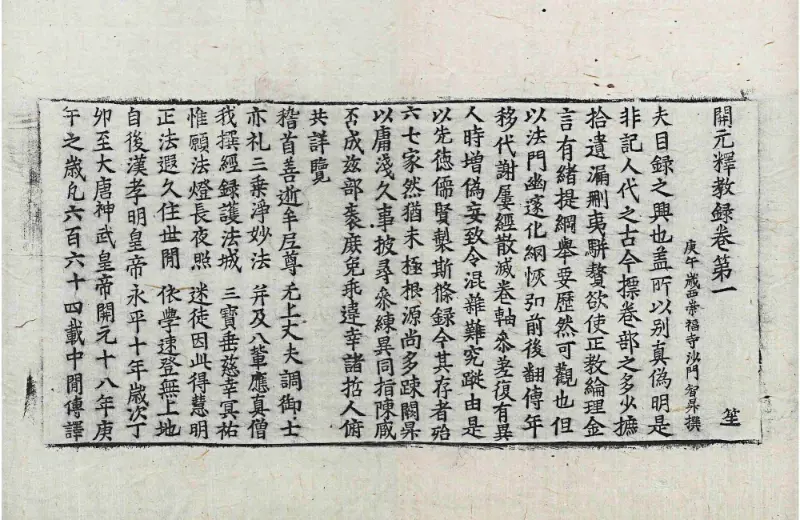 開元釋教錄卷第一 笙
庚午歲西崇福寺沙門智昇撰
夫目録之興也盖所以别真偽明是
非記人代之古今摽卷部之多少摭
拾遺漏刪夷駢贅欲使正教綸理金
言有緒提綱舉要歷然可觀也但
以法門幽邃化網恢弘前後翻傳年
移代謝屢經散滅卷軸叅差復有異
人時增偽妄致令混雜難究蹤由是
以先德儒賢製斯條録今其存者殆
六七家然猶未極根源尚多踈闕昇
以庸淺久事披尋叅練異同指陳臧
否成兹部袠庶免乖違幸諸哲人俯
共詳覽
稽首善逝牟尼尊 无上丈夫調御士
亦礼三乗淨妙法 并及八軰應真僧
我撰經録護法城 三寶垂慈幸冥祐
惟願法燈長夜照 迷徒因此得慧明
正法遐久住世間 依學速登無上地
自後漢孝明皇帝永平十年歲次丁
卯至大唐神武皇帝開元十八年庚
午之歲凡六百六十四載中間傳譯